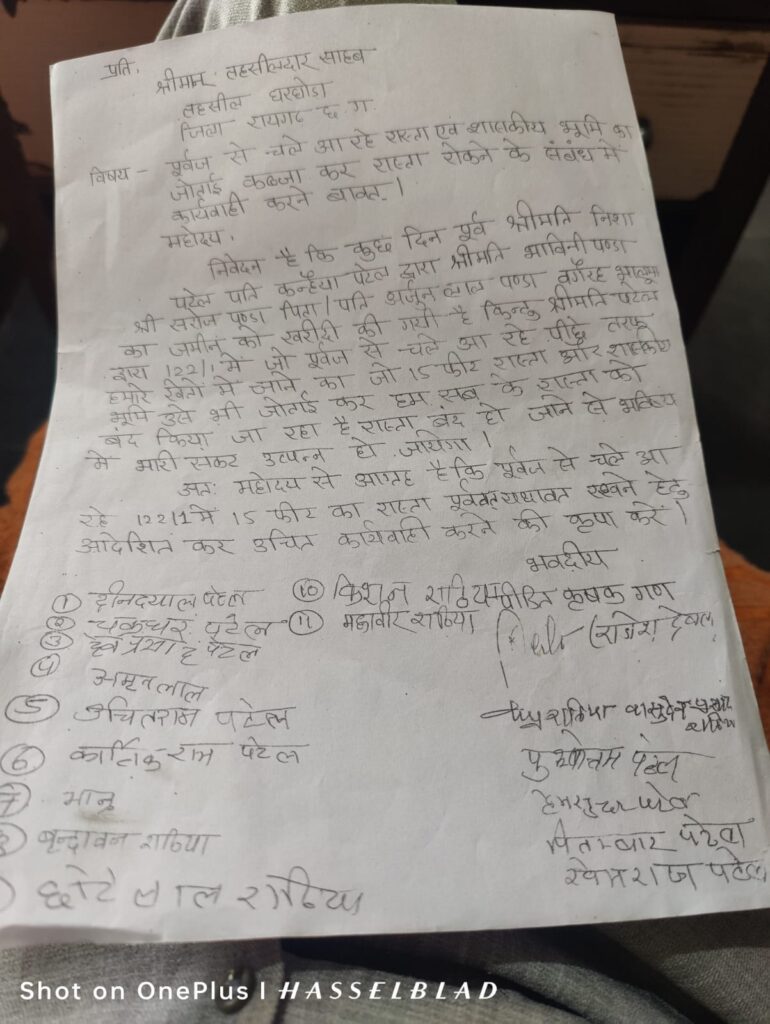 प्रति,
श्रीमान् तहसीलदार साहब
तहसील घरघोडा
जिला रायगढ छ. ग.
विषय - पूर्वज से चले आ रहे रास्ता एवं शासकीय भूमि का
जोताई कब्जा कर रास्ता रोकने के संबंध में
कार्यवाही करने बाबत् ।
महोदय,
निवेदन है कि कुछ दिन पूर्व श्रीमति निशा
पटेल पति कन्हैया पटेल द्वारा श्रीमति भाविनी पण्डा
श्री सरोज पण्डा पिता/पति अर्जुन लाल पण्डा वगैरह
का जमीन को खरीदी की गयी है किन्तु श्रीमति पटेल
द्वारा 122/1 में जो पूर्वज से चले आ रहे पीछे तरफ
हमारे खेतों में जाने का जो 15 फीट रास्ता और शासकीय
भूमि उसे भी जोताई कर हम सब के रास्ता को
बंद किया जा रहा है रास्ता बंद हो जाने से भविष्य
में भारी संकट उत्पन्न हो जायेगा ।
अतः महोदय से आग्रह है कि पूर्वज से चले आ
रहे 122/1 में 15 फीट का रास्ता पूर्ववत् यथावत रखने हेतु
आदेशित कर उचित कार्यवाही करने की कृपा करें ।
भवदीय
① दीनदयाल पटेल ⑩ किशन राठिया पीडित कृषक गण
② चक्रधर पटेल ⑪ महावीर राठिया
③ पटेल (राजेश
④ अमृत लाल
⑤ उचितराम पटेल राठिया वासुदेव राठिया
⑥ कार्तिक राम पटेल पुरुषोत्तम पटेल
7 भानु पटेल
8 बृन्दावन राठिया पिताम्बर पटेल
छोटे लाल राठिया खेमराज पटेल
Shot on OnePlus | HASSELBLAD